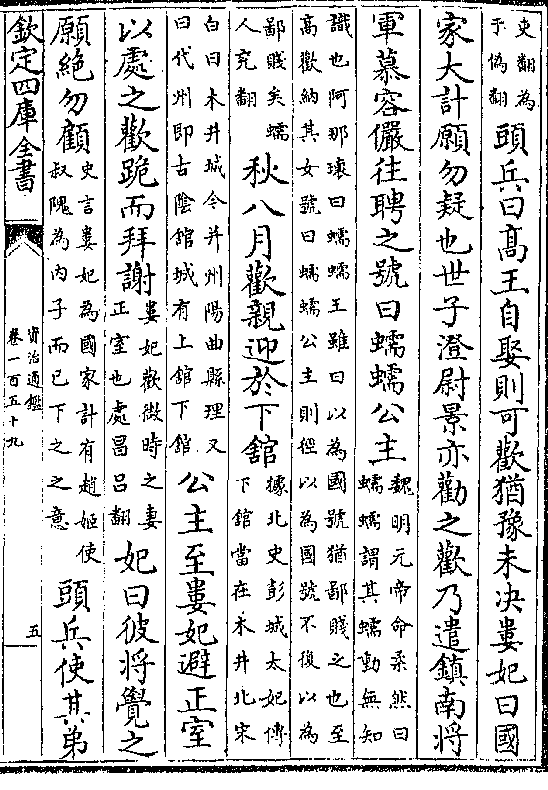 吏翻為
于偽翻
頭兵曰髙王自娶則可歡猶豫未决婁妃曰國
家大計願勿疑也世子澄尉景亦勸之歡乃遣鎮南將
軍慕容儼往聘之號曰蠕蠕公主
魏明元帝命柔然曰
蠕蠕謂其蠕動無知
識也阿那瓌曰蠕蠕王雖曰以為國號猶鄙賤之也至
高歡納其女號曰蠕蠕公主則徑以為國號不復以為
鄙賤矣蠕
人兖翻
秋八月歡親迎於下舘
據北史彭城太妃傳
下舘當在木井北宋
白曰木井城今并州陽曲縣理又
曰代州即古隂館城有上舘下舘
公主至婁妃避正室
以處之歡跪而拜謝
婁妃歡微時之妻
正室也處昌吕翻
妃曰彼將覺之
願絶勿顧
史言婁妃為國家計有趙姬使
叔隗為内子而已下之之意
頭兵使其弟
欽定四庫全書
資治通鑑
卷一百五十九
五